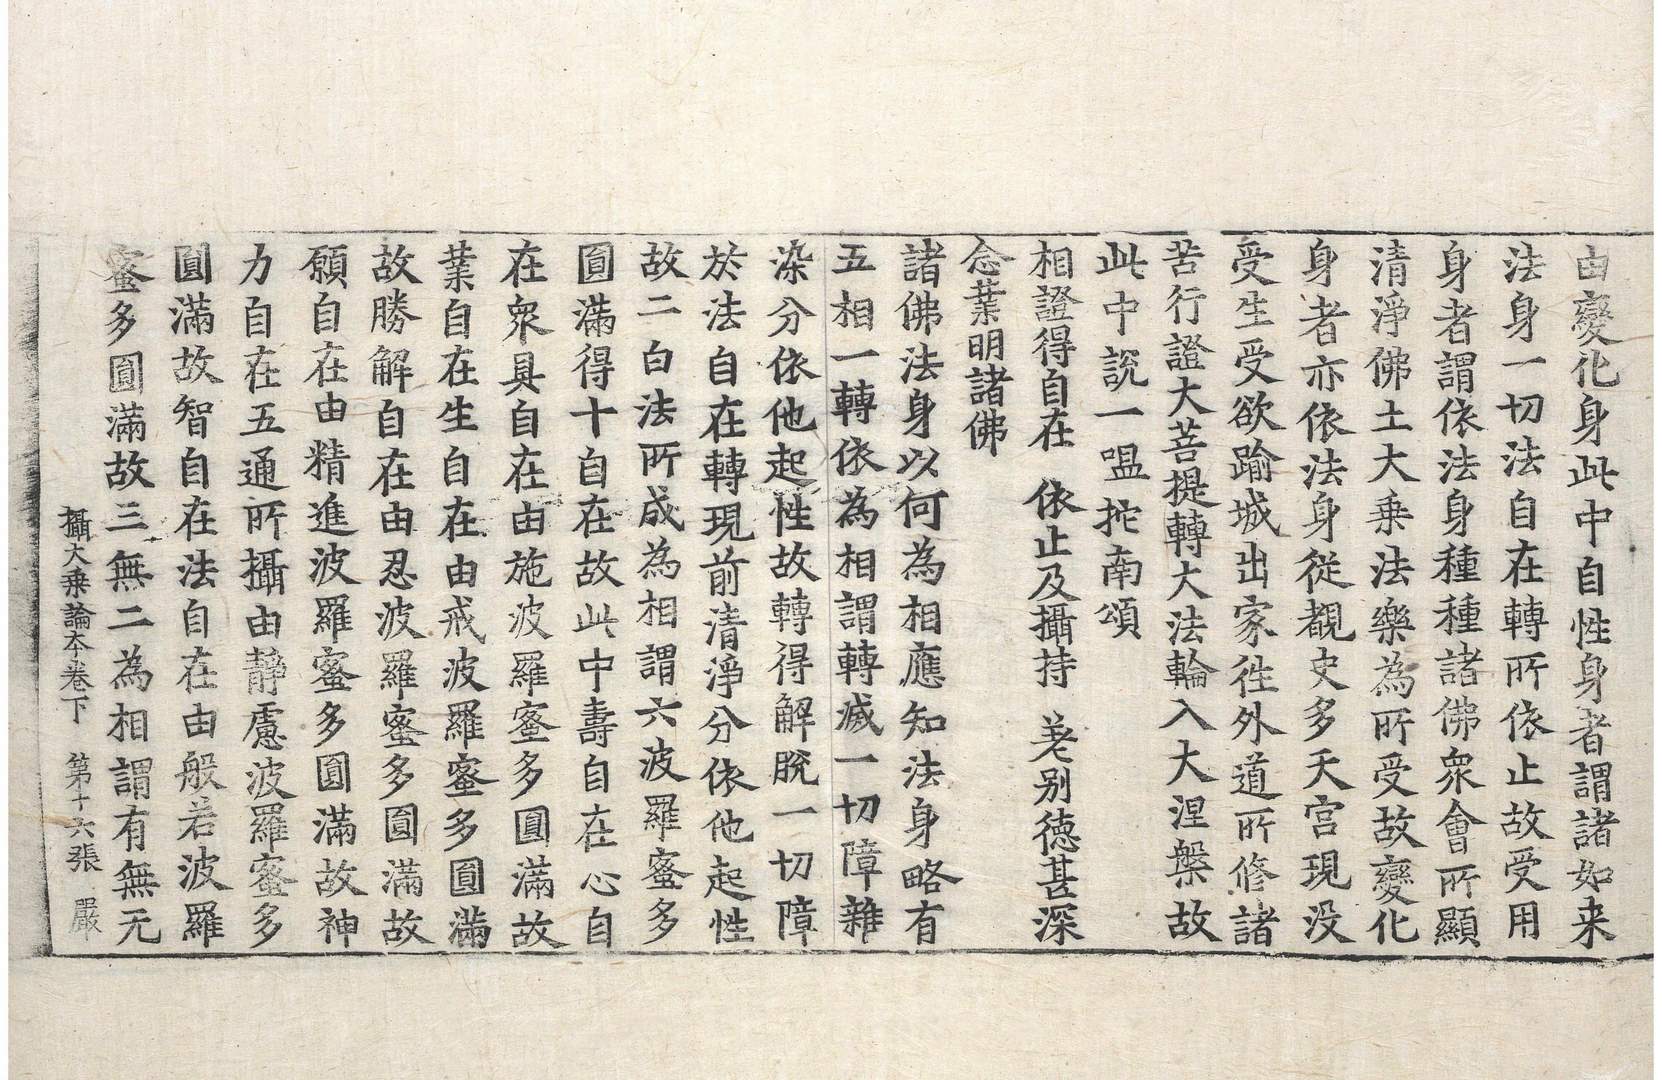 由變化身此中自性身者謂諸如来
法身一切法自在轉所依止故受用
身者謂依法身種種諸佛衆會所顯
清淨佛土大乗法樂為所受故變化
身者亦依法身從覩史多天宫現没
受生受欲踰城出家徃外道所修諸
苦行證大菩提轉大法輪入大涅槃故
此中說一嗢拕南頌
相證得自在　依止及攝持　差别德甚深
念業明諸佛
諸佛法身以何為相應知法身略有
五相一轉依為相謂轉滅一切障雜
染分依他起性故轉得解脫一切障
於法自在轉現前清淨分依他起性
故二白法所成為相謂六波羅蜜多
圓滿得十自在故此中壽自在心自
在衆具自在由施波羅蜜多圓滿故
業自在生自在由戒波羅蜜多圓滿
故勝解自在由忍波羅蜜多圓滿故
願自在由精進波羅蜜多圓滿故神
力自在五通所攝由靜慮波羅蜜多
圓滿故智自在法自在由般若波羅
蜜多圓滿故三無二為相謂有無无
攝大乗論本卷下　第十六張　嚴